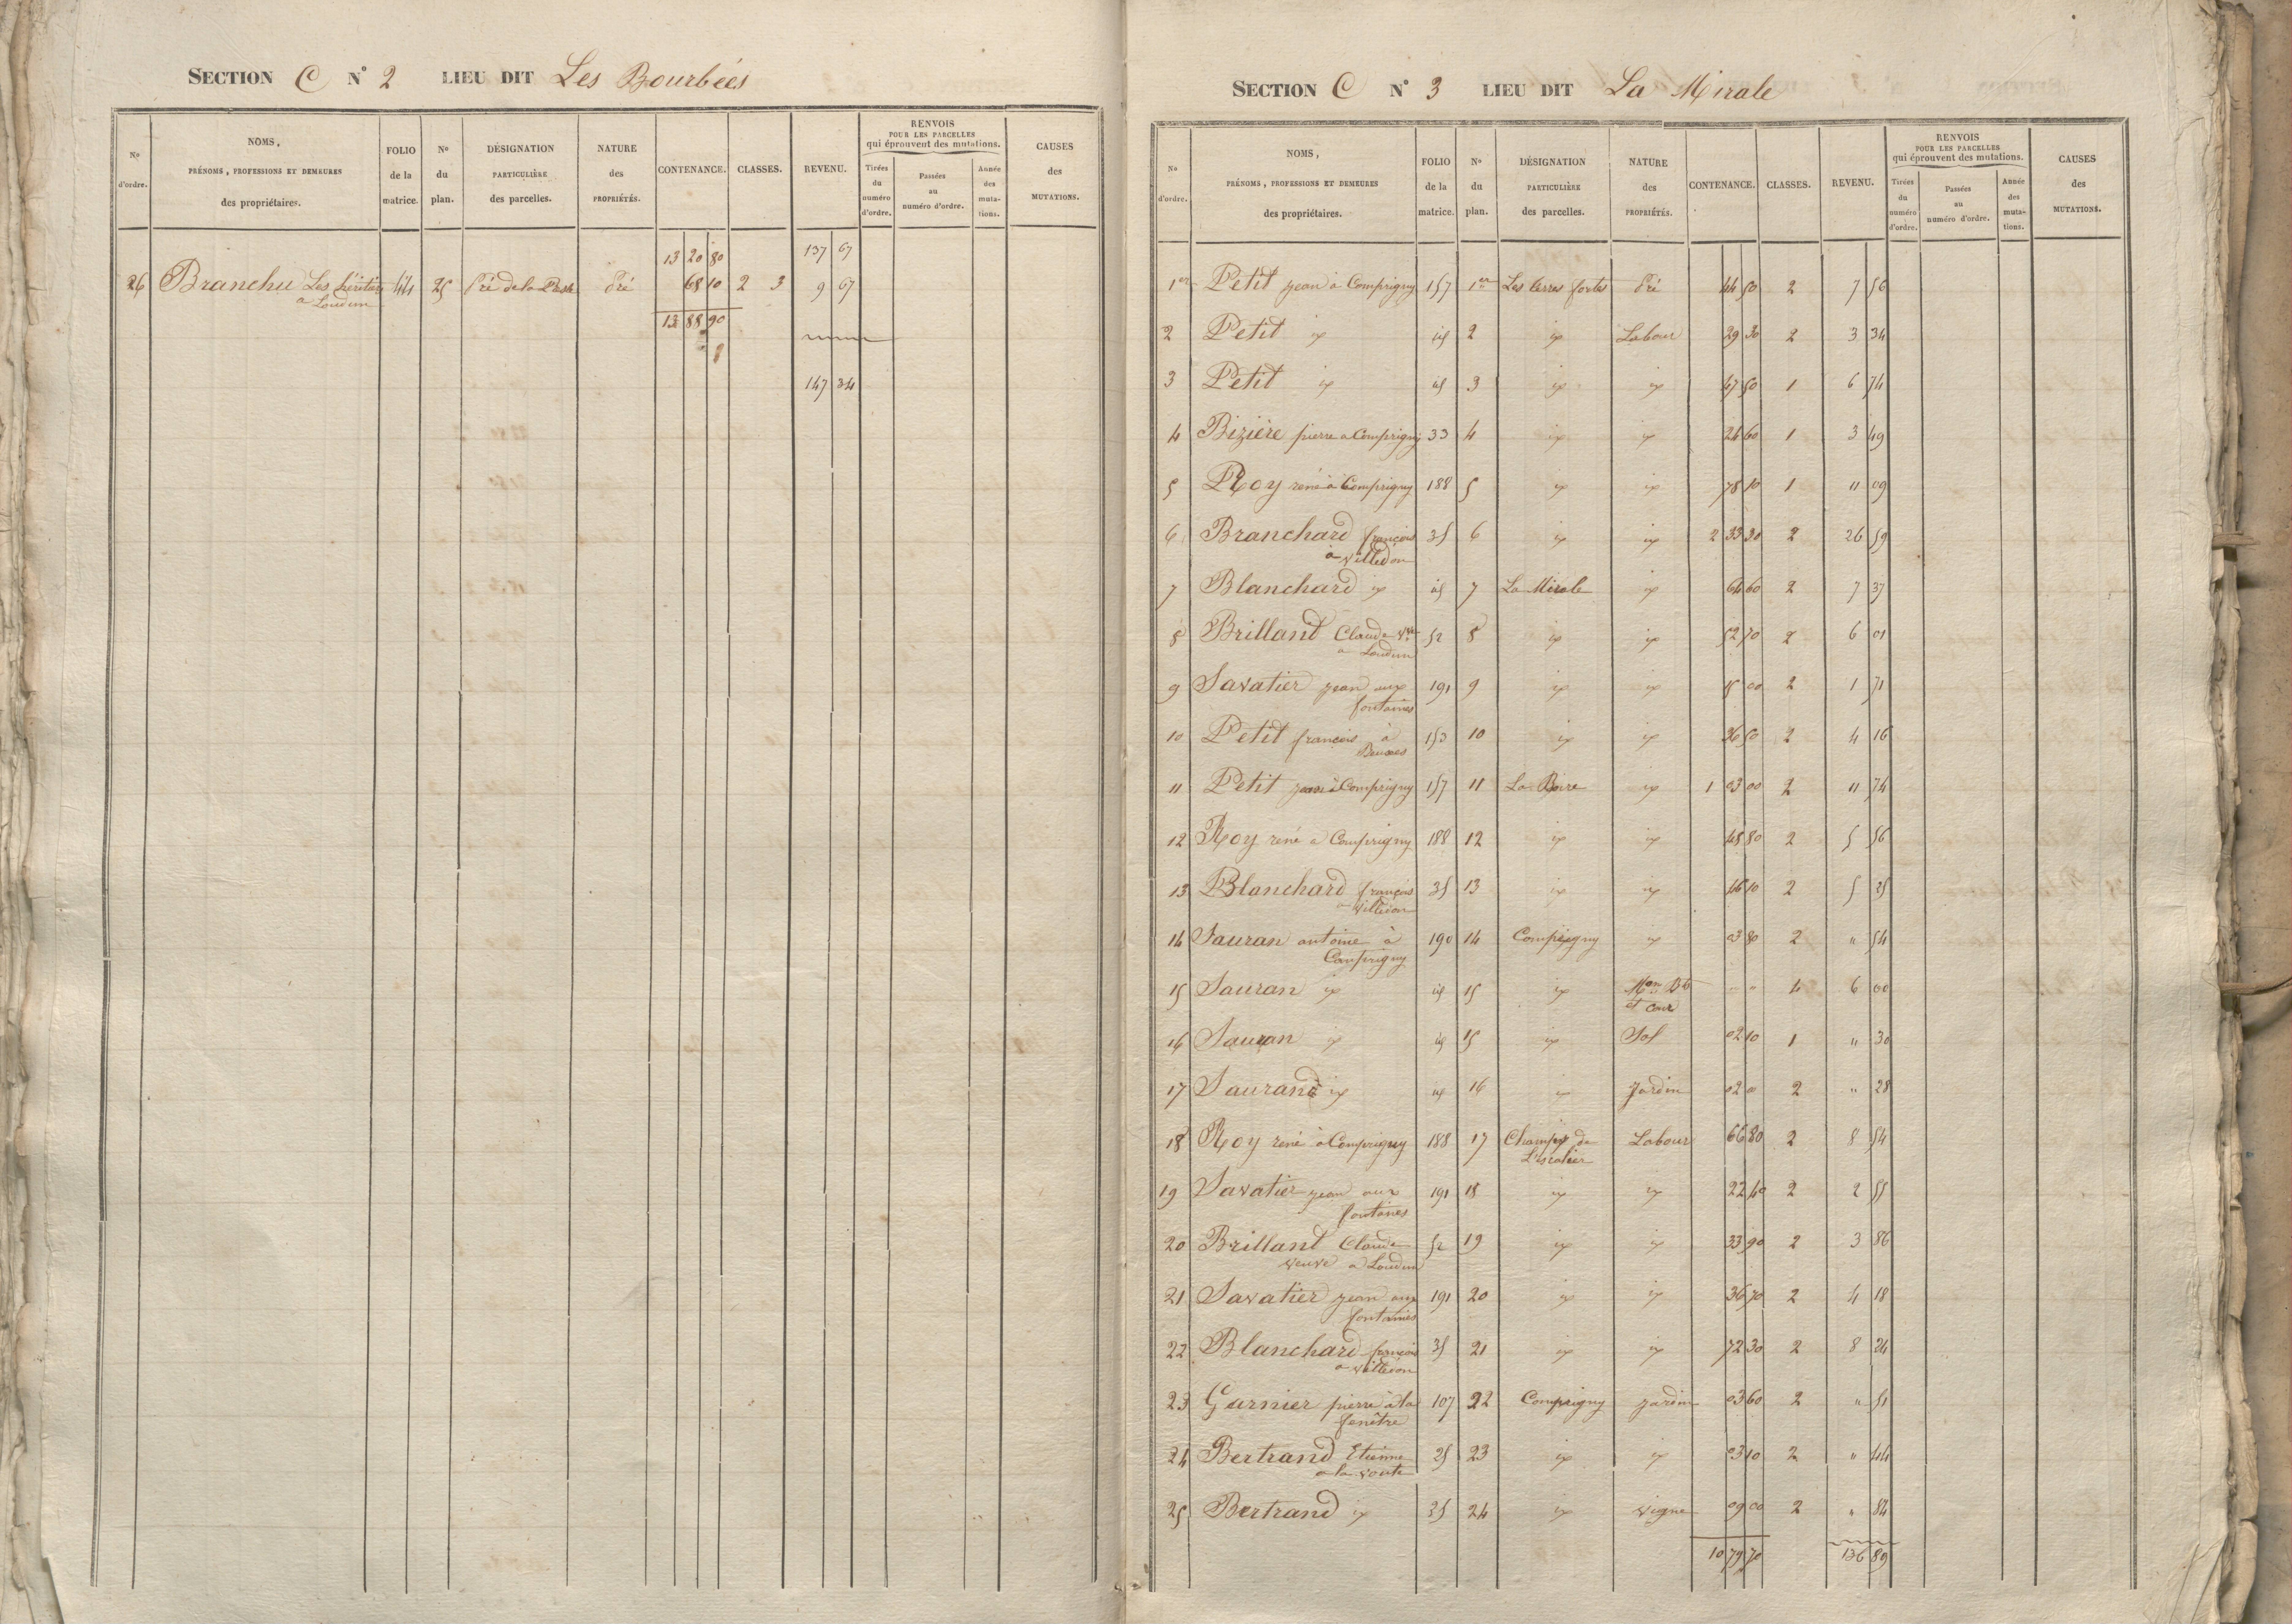 SECTION C N° 2 LIEU DIT Les Bourbées
N° d'ordre. NOMS, PRÉNOMS, PROFESSIONS ET DEMEURES des propriétaires. FOLIO de la matrice. N° du plan. DÉSIGNATION PARTICULIÈRE des parcelles. NATURE des PROPRIÉTÉS. CONTENANCE. CLASSES. REVENU. RENVOIS POUR LES PARCELLES qui éprouvent des mutations. Tirées du numéro d'ordre. Passées au numéro d'ordre. Année des muta-tions. CAUSES des MUTATIONS.
13 20 80 137 67
26 Branchu Les héritiers 44 25 Pré de la Pré 68 10 2 3 9 67
a Loudun
13 88 90
147 34
SECTION C N° 3 LIEU DIT La Mirale
N° d'ordre. NOMS, PRÉNOMS, PROFESSIONS ET DEMEURES des propriétaires. FOLIO de la matrice. N° du plan. DÉSIGNATION PARTICULIÈRE des parcelles. NATURE des PROPRIÉTÉS. CONTENANCE. CLASSES. REVENU. RENVOIS POUR LES PARCELLES qui éprouvent des mutations. Tirées du numéro d'ordre. Passées au numéro d'ordre. Année des muta-tions. CAUSES des MUTATIONS.
1er Petit jean à Comprigny 157 1er Les terres fortes Pré 44 50 2 7 56
2 Petit id 2 Labour 29 30 2 3 34
3 Petit id 3 47 50 1 6 74
4 Bizière pierre a Comprigny 33 4 24 60 1 3 49
5 Roy rené à Comprigny 188 5 78 10 1 11 09
6 Branchard françois 35 6 2 33 30 2 26 59
à villedon
7 Blanchard id 7 La Mirale 64 60 2 7 37
8 Brilland Claude Vve 52 8 52 70 2 6 01
a Loudun
9 Savatier jean aux 191 9 15 00 2 1 71
fontaines
10 Petit françois à 153 10 36 50 2 4 16
11 Petit jean à Comprigny 157 11 1 03 00 2 11 74
12 Roy rené a Comprigny 188 12 48 80 2 5 56
13 Blanchard françois 35 13 46 10 2 5 25
a villedon
14 Sauran antoine à 190 14 Comprigny 03 80 2 " 54
Comprigny
15 Sauran id 15 Mon Bt " " 4 6 00
et cour
16 Sauran id 15 Sol 02 10 1 " 30
17 Saurand id 16 Jardin 02 2 " 28
18 Roy rené à Comprigny 188 17 Champs de Labour 66 80 2 8 54
L'escalier
19 Savatier jean aux 191 18 22 40 2 2 55
fontaines
20 Brilland Claude 52 19 33 90 2 3 86
veuve a Loudun
21 Savatier jean aux 191 20 36 70 2 4 18
fontaines
22 Blanchard françois 35 21 72 30 2 8 24
a villedon
23 Garnier pierre à la 107 22 Comprigny jardin 03 60 2 " 51
fenêtre
24 Bertrand Etienne 25 23 03 10 2 " 44
a la voute
25 Bertrand 35 24 vigne 09 00 2 " 84
10 79 70 136 89